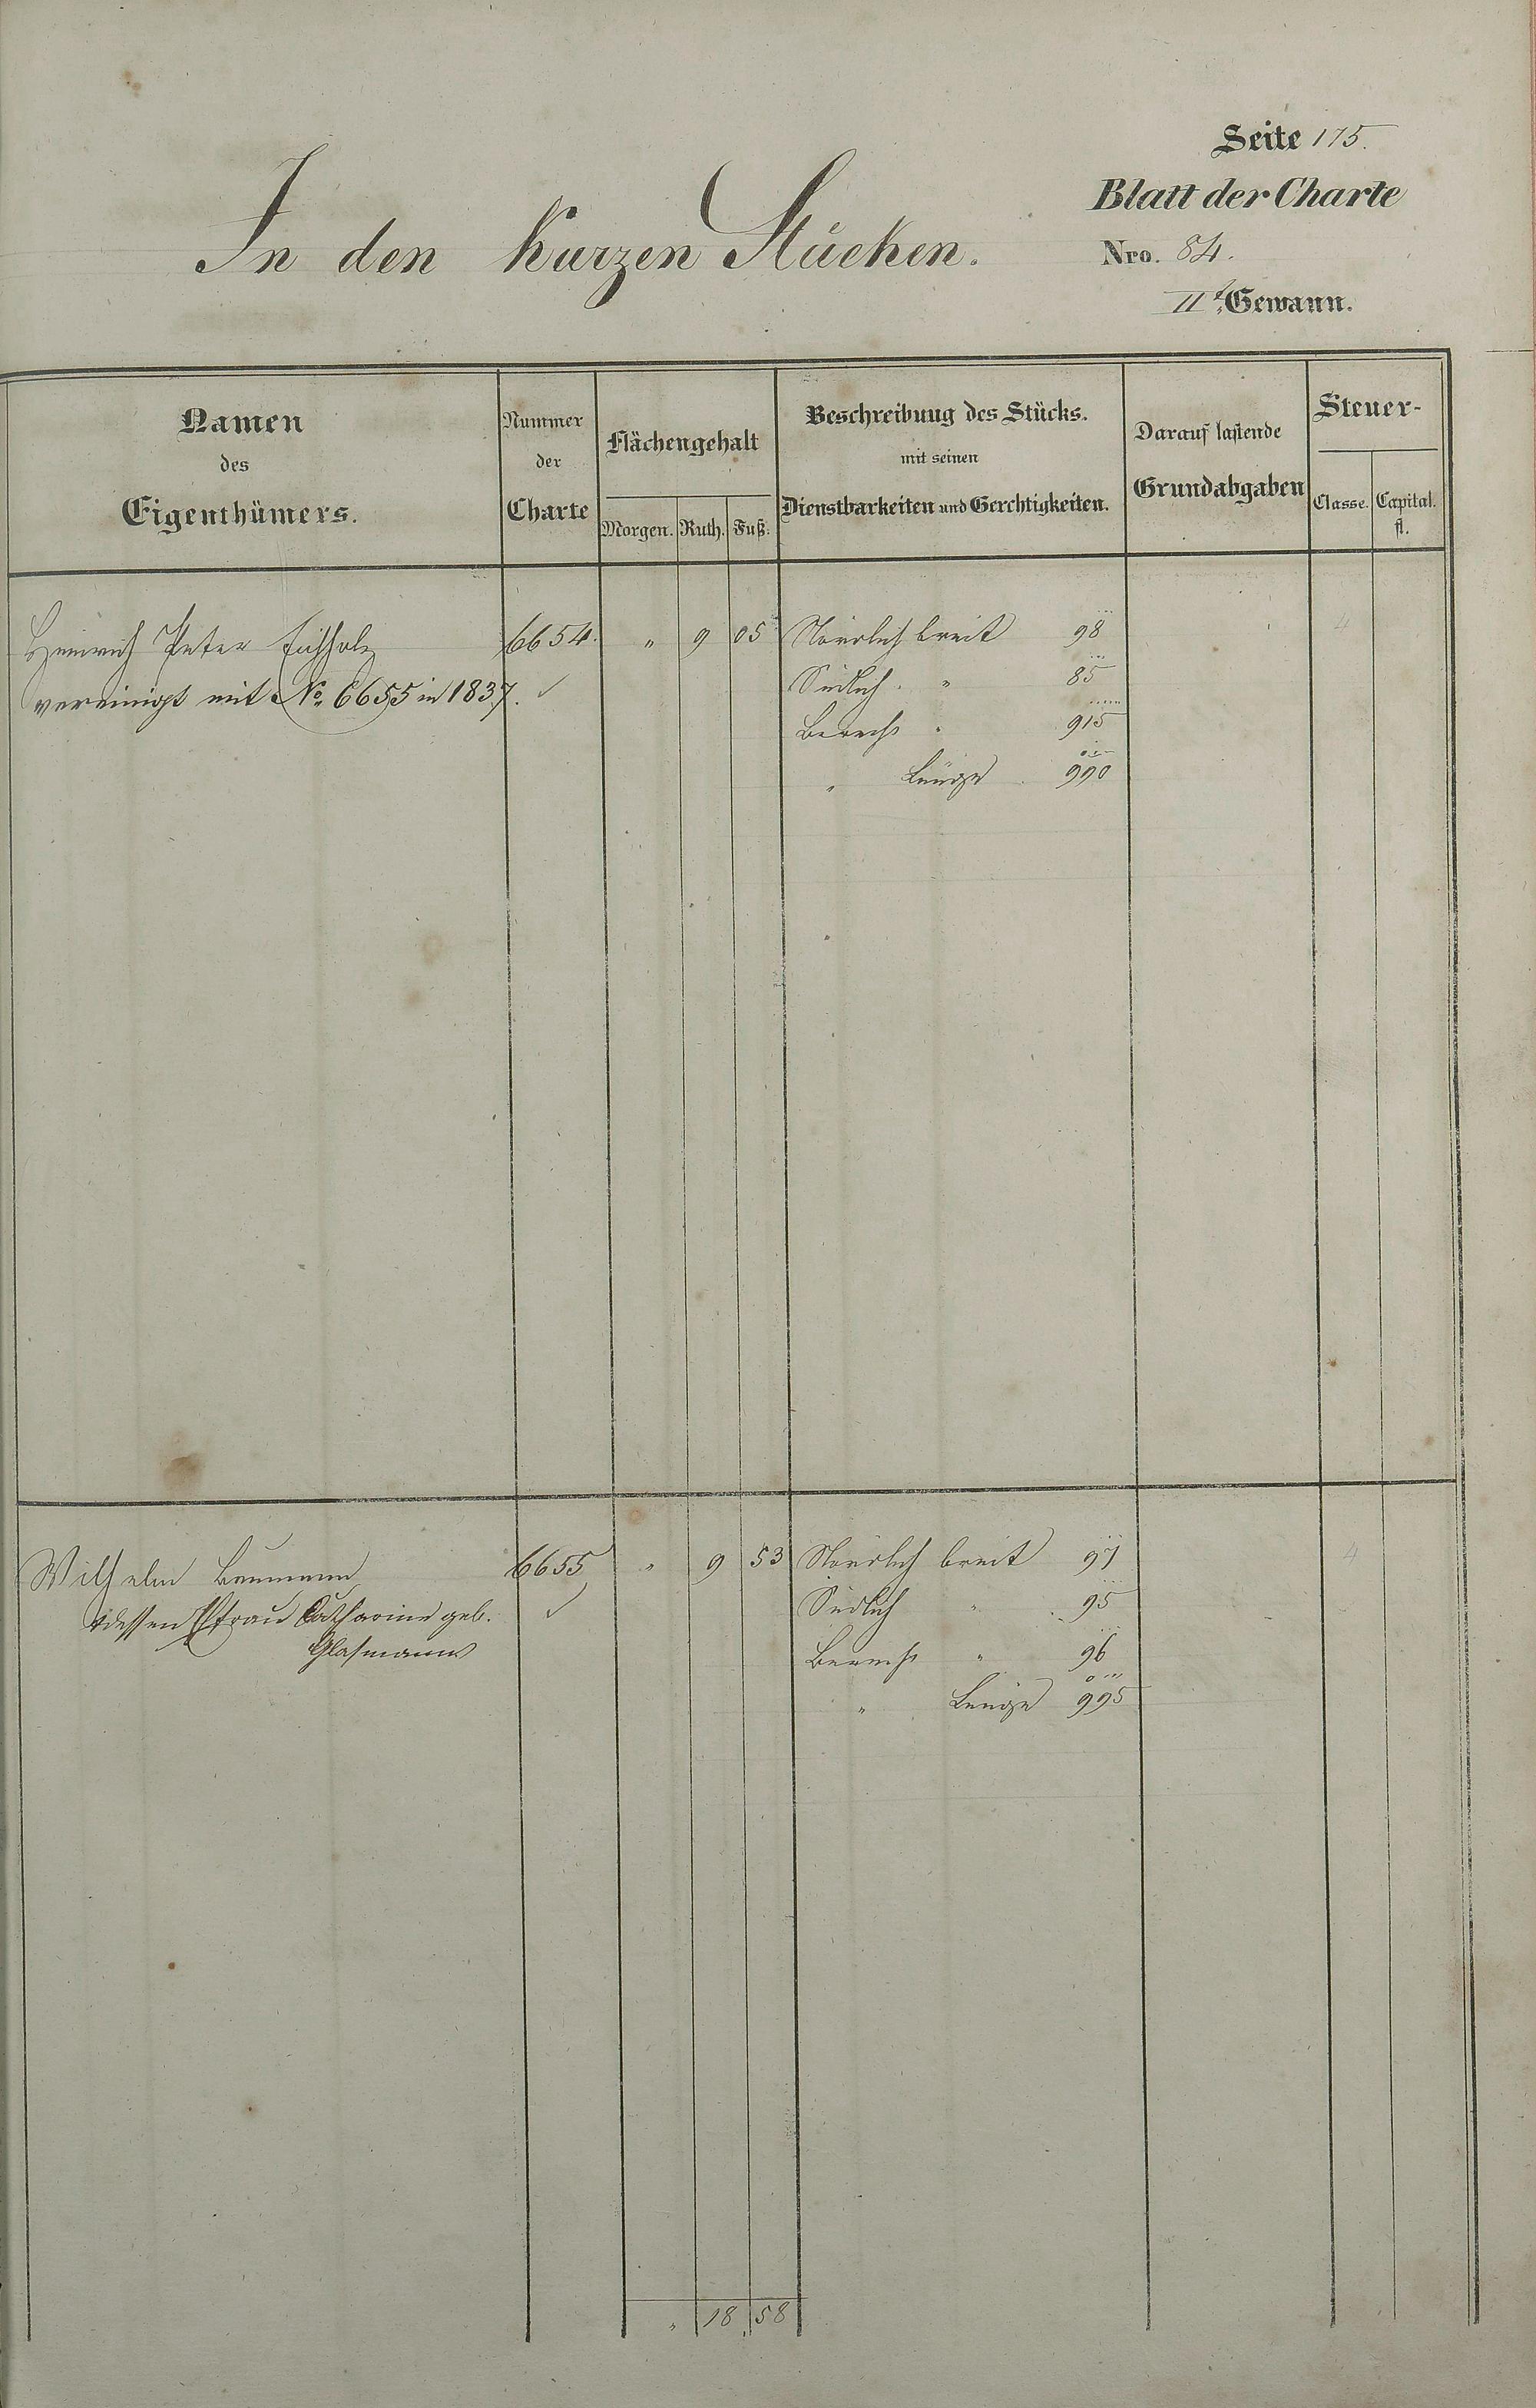 Seite 175.
Blatt der Charte
In den Kurzen Stücken.
Nro. 84.
IIt. Gewann.
Namen
des
Eigenthümers.
Nummer
der
Charte
Flächengehalt
Morgen. Ruth. Fuß.
Beschreibung des Stücks.
mit seinen
Dienstbarkeiten und Gerchtigkeiten.
Darauf lastende
Grundabgaben
Steuer-
Classe. Capital.
fl.
Heinrich Peter Eichholz 6654. " 9 05 Nördlich breit 98 4
vereinigt mit No. 6655 in 1837. ✓ Südlich " 85
Berech " 915
" Länge 990
Wilhelm Baumann 6655 " 9 53 Nördlich breit 97 4
dessen Frau Catharine geb. ✓ Südlich " 95
Glasmann Berech " 96
" Länge 995
" 18 58